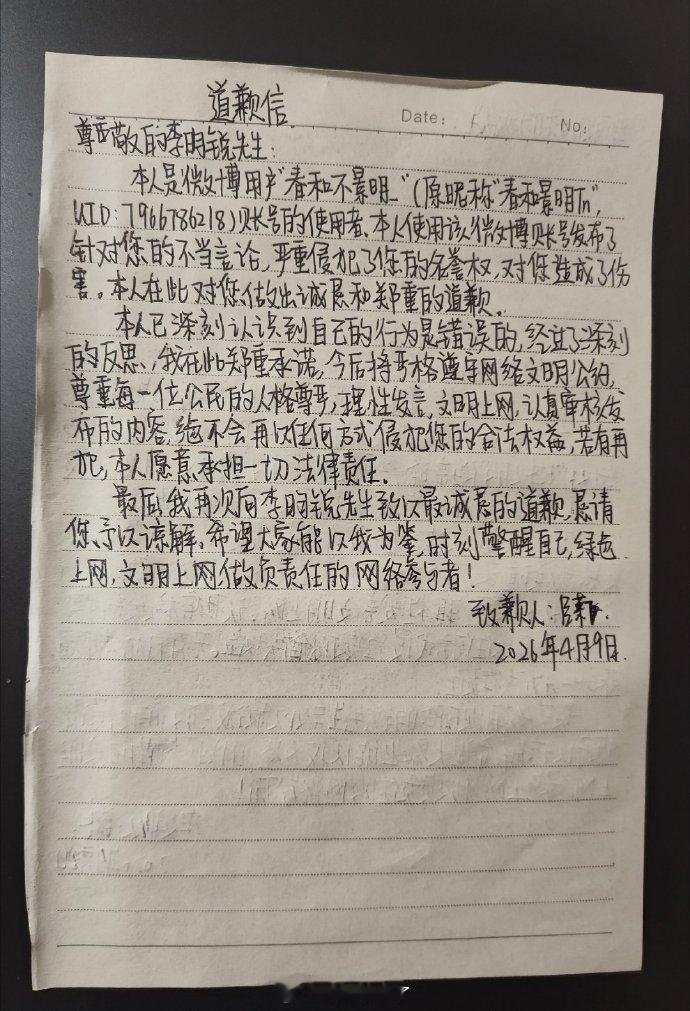 道歉信
Date:
No:
尊敬的李昀锐先生:
本人是微博用户"春和不景明_"(原昵称"春和景明Tn",
UID:7966786218)账号的使用者,本人使用该微博账号发布了
针对您的不当言论,严重侵犯了您的名誉权,对您造成了伤
害。本人在此对您做出诚恳和郑重的道歉。
本人已深刻认识到自己的行为是错误的,经过了深刻
的反思,我在此郑重承诺,今后将严格遵守网络文明公约,
尊重每一位公民的人格尊严,理性发言,文明上网,认真审核发
布的内容,绝不会再以任何方式侵犯您的合法权益,若有再
犯,本人愿意承担一切法律责任.
最后,我再次向李昀锐先生致以最诚恳的道歉,恳请
您予以谅解,希望大家能以我为鉴,时刻警醒自己,绿色
上网,文明上网做负责任的网络参与者!
致歉人:
2026年4月9日.